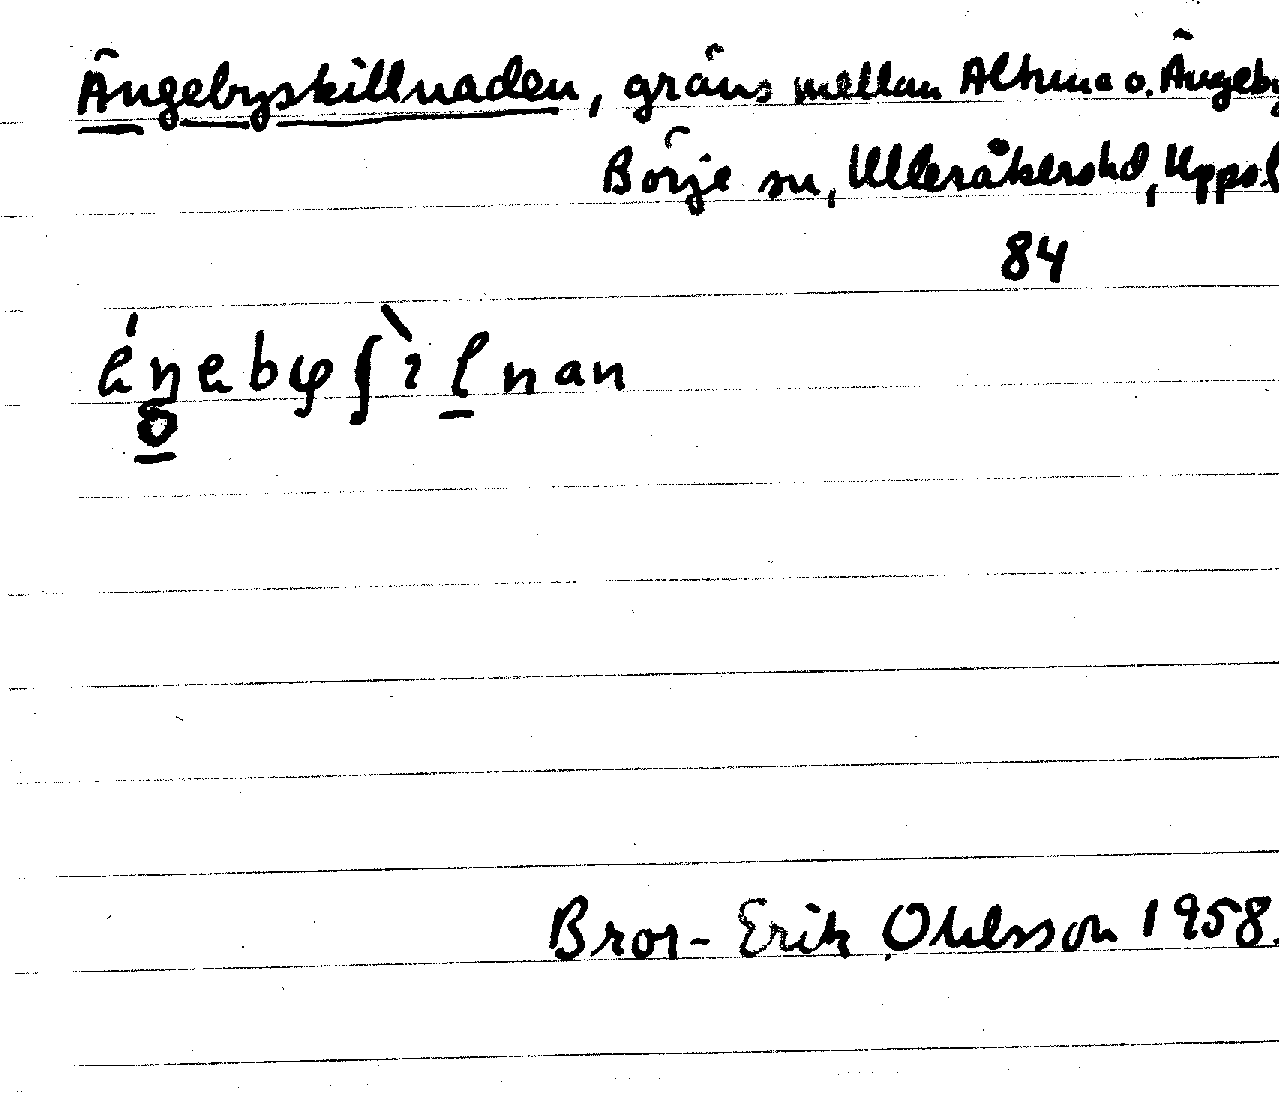 Ängebyskillnaden, gräns mellan Altuna o. Ängeby
Börje sn, Ulleråkers hd, Uppsl
84
Bror-Erik Ohlsson 1958.